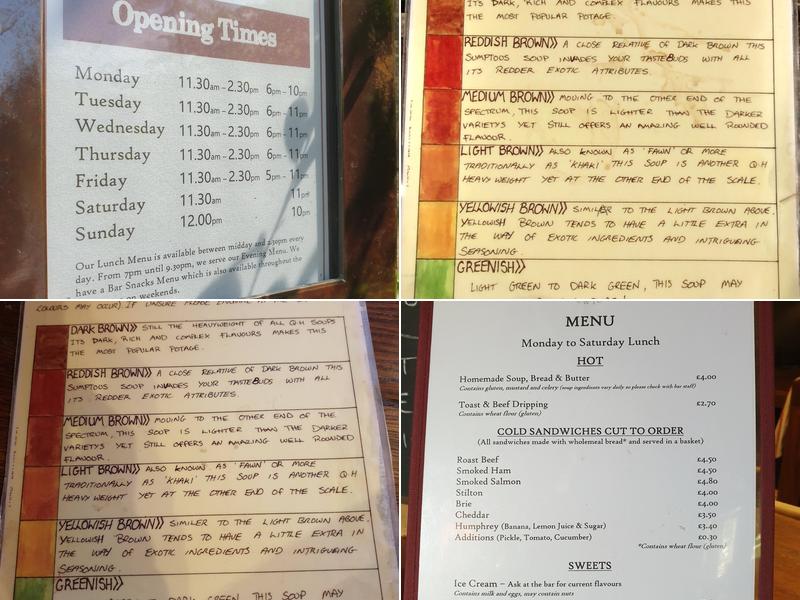 Opening Times
Monday 11.30am – 2.30pm 6pm – 10pm
Tuesday 11.30am – 2.30pm 6pm – 11pm
Wednesday 11.30am – 2.30pm 6pm – 11pm
Thursday 11.30am – 2.30pm 6pm – 11pm
Friday 11.30am – 2.30pm 5pm – 11pm
Saturday 11.30am 11pm
Sunday 12.00pm 10pm
Our Lunch Menu is available between midday and 2.30pm every
day. From 7pm until 9.30pm, we serve our Evening Menu. We
have a Bar Snacks Menu which is also available throughout the
on weekends.
ITS DARK, RICH AND COMPLEX FLAVOURS MAKES THIS
THE MOST POPULAR POTAGE.
REDDISH BROWN>> A CLOSE RELATIVE OF DARK BROWN THIS
SUMPTOOS SOUP INVADES YOUR TASTEBUDS WITH ALL
ITS REDDER EXOTIC ATTRIBUTES.
MEDIUM BROWN>> MOVING TO THE OTHER END OF THE
SPECTRUM, THIS SOUP IS LIGHTER THAN THE DARKER
VARIETYS YET STILL OFFERS AN AMAZING WELL ROUNDED
FLAVOUR.
LIGHT BROWN>> ALSO KNOWN AS 'FAWN' OR MORE
TRADITIONALLY AS 'KHAKI' THIS SOUP IS ANOTHER Q.H
HEAVY WEIGHT YET AT THE OTHER END OF THE SCALE.
YELLOWISH BROWN>> SIMILER TO THE LIGHT BROWN ABOVE.
YELLOWISH BROWN TENDS TO HAVE A LITTLE EXTRA IN
THE WAY OF EXOTIC INGREDIENTS AND INTRIGUEING
SEASONING.
GREENISH>>
LIGHT GREEN TO DARK GREEN, THIS SOUP MAY
COLOURS MAY OCCUR). IF UNSURE PLEASE
DARK BROWN>> STILL THE HEAVYWEIGHT OF ALL Q.H SOUPS
ITS DARK, RICH AND COMPLEX FLAVOURS MAKES THIS
THE MOST POPULAR POTAGE.
REDDISH BROWN>> A CLOSE RELATIVE OF DARK BROWN THIS
SUMPTOOS SOUP INVADES YOUR TASTEBUDS WITH ALL
ITS REDDER EXOTIC ATTRIBUTES.
MEDIUM BROWN>> MOVING TO THE OTHER END OF THE
SPECTRUM, THIS SOUP IS LIGHTER THAN THE DARKER
VARIETYS YET STILL OFFERS AN AMAZING WELL ROUNDED
FLAVOUR.
LIGHT BROWN>> ALSO KNOWN AS 'FAWN' OR MORE
TRADITIONALLY AS 'KHAKI' THIS SOUP IS ANOTHER Q.H
HEAVY WEIGHT YET AT THE OTHER END OF THE SCALE.
YELLOWISH BROWN>> SIMILER TO THE LIGHT BROWN ABOVE.
YELLOWISH BROWN TENDS TO HAVE A LITTLE EXTRA IN
THE WAY OF EXOTIC INGREDIENTS AND INTRIGUEING
SEASONING.
GREENISH>>
DARK GREEN, THIS SOUP MAY
MENU
Monday to Saturday Lunch
HOT
Homemade Soup, Bread & Butter £4.00
Contains gluten, mustard and celery (soup ingredients vary daily so please check with bar staff)
Toast & Beef Dripping £2.70
Contains wheat flour (gluten)
COLD SANDWICHES CUT TO ORDER
(All sandwiches made with wholemeal bread* and served in a basket)
Roast Beef £4.50
Smoked Ham £4.50
Smoked Salmon £4.80
Stilton £4.00
Brie £4.00
Cheddar £3.50
Humphrey (Banana, Lemon Juice & Sugar) £3.40
Additions (Pickle, Tomato, Cucumber) £0.30
*Contains wheat flour (gluten)
SWEETS
Ice Cream – Ask at the bar for current flavours
Contains milk and eggs, may contain nuts